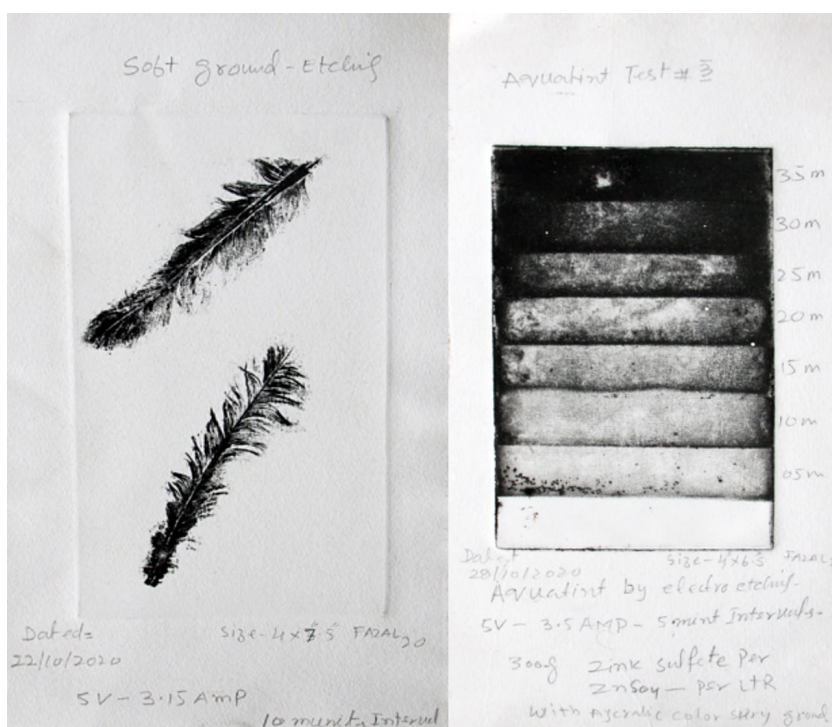 Soft ground-Etching
Dated=
22/10/2020
Size-4x7.5 FAZAL 20
5V-3.15 AMP
10 munits Interval
Aquatint Test # 3
35m
30m
25m
20m
15m
10m
05m
Dated
28/10/2020
Size-4"x6.5 FAZAL
Aquatint by electroetching-
5V-3.5AMP-5 mint Intervals-
300g zink sulfete Per
ZnSoy-Per LTR
With Acralic color spry ground